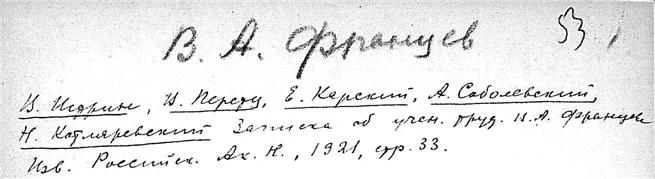 В. А. Францев 53
В. Истрин, В. Перетц, Е. Карский, А. Соболевский,
Н. Котляревский Записка об учен. труд. В. А. Францева
Изв. Российск. Ак. Н., 1921, стр. 33.